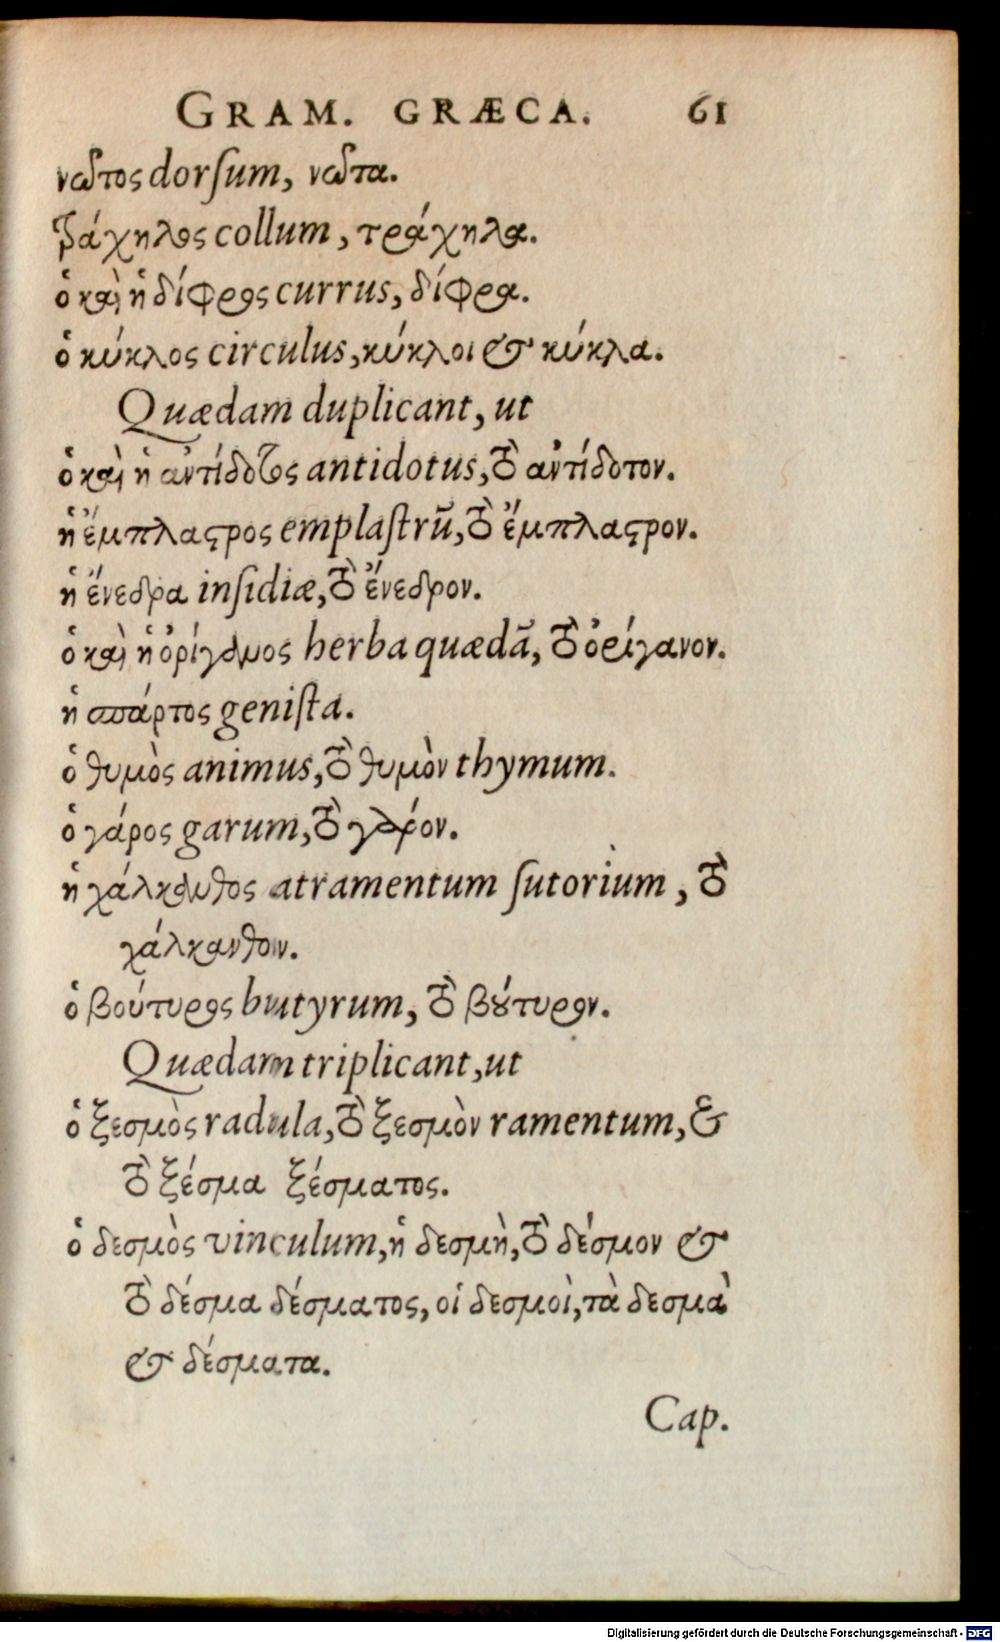 GRAM. GRÆCA. 61
νῶτος dorſum, νῶτα.
τράχηλος collum, τράχηλα.
ὁ καὶ ἡ δίφρος currus, δίφρα.
ὁ κύκλος circulus, κύκλοι & κύκλα.
Quædam duplicant, ut
ὁ καὶ ἡ ἀντίδοτος antidotus, τὸ ἀντίδοτον.
ἡ ἔμπλαϛρος emplaſtrū, τὸ ἔμπλαϛρον.
ἡ ἔνεδρα inſidiæ, τὸ ἔνεδρον.
ὁ καὶ ἡ ὀρίγανος herba quædā, τὸ ὀρίγανον.
ἡ σπάρτος geniſta.
ὁ θυμὸς animus, τὸ θυμὸν thymum.
ὁ γάρος garum, τὸ γάρον.
ἡ χάλκανθος atramentum ſutorium, τὸ
χάλκανθον.
ὁ βούτυρος butyrum, τὸ βούτυρον.
Quædam triplicant, ut
ὁ ξεσμὸς radula, τὸ ξεσμὸν ramentum, &
τὸ ξέσμα ξέσματος.
ὁ δεσμὸς vinculum, ἡ δεσμὴ, τὸ δέσμον &
τὸ δέσμα δέσματος, οἱ δεσμοὶ, τὰ δεσμὰ
& δέσματα.
Cap.
Digitalisierung gefördert durch die Deutsche Forschungsgemeinschaft - DFG